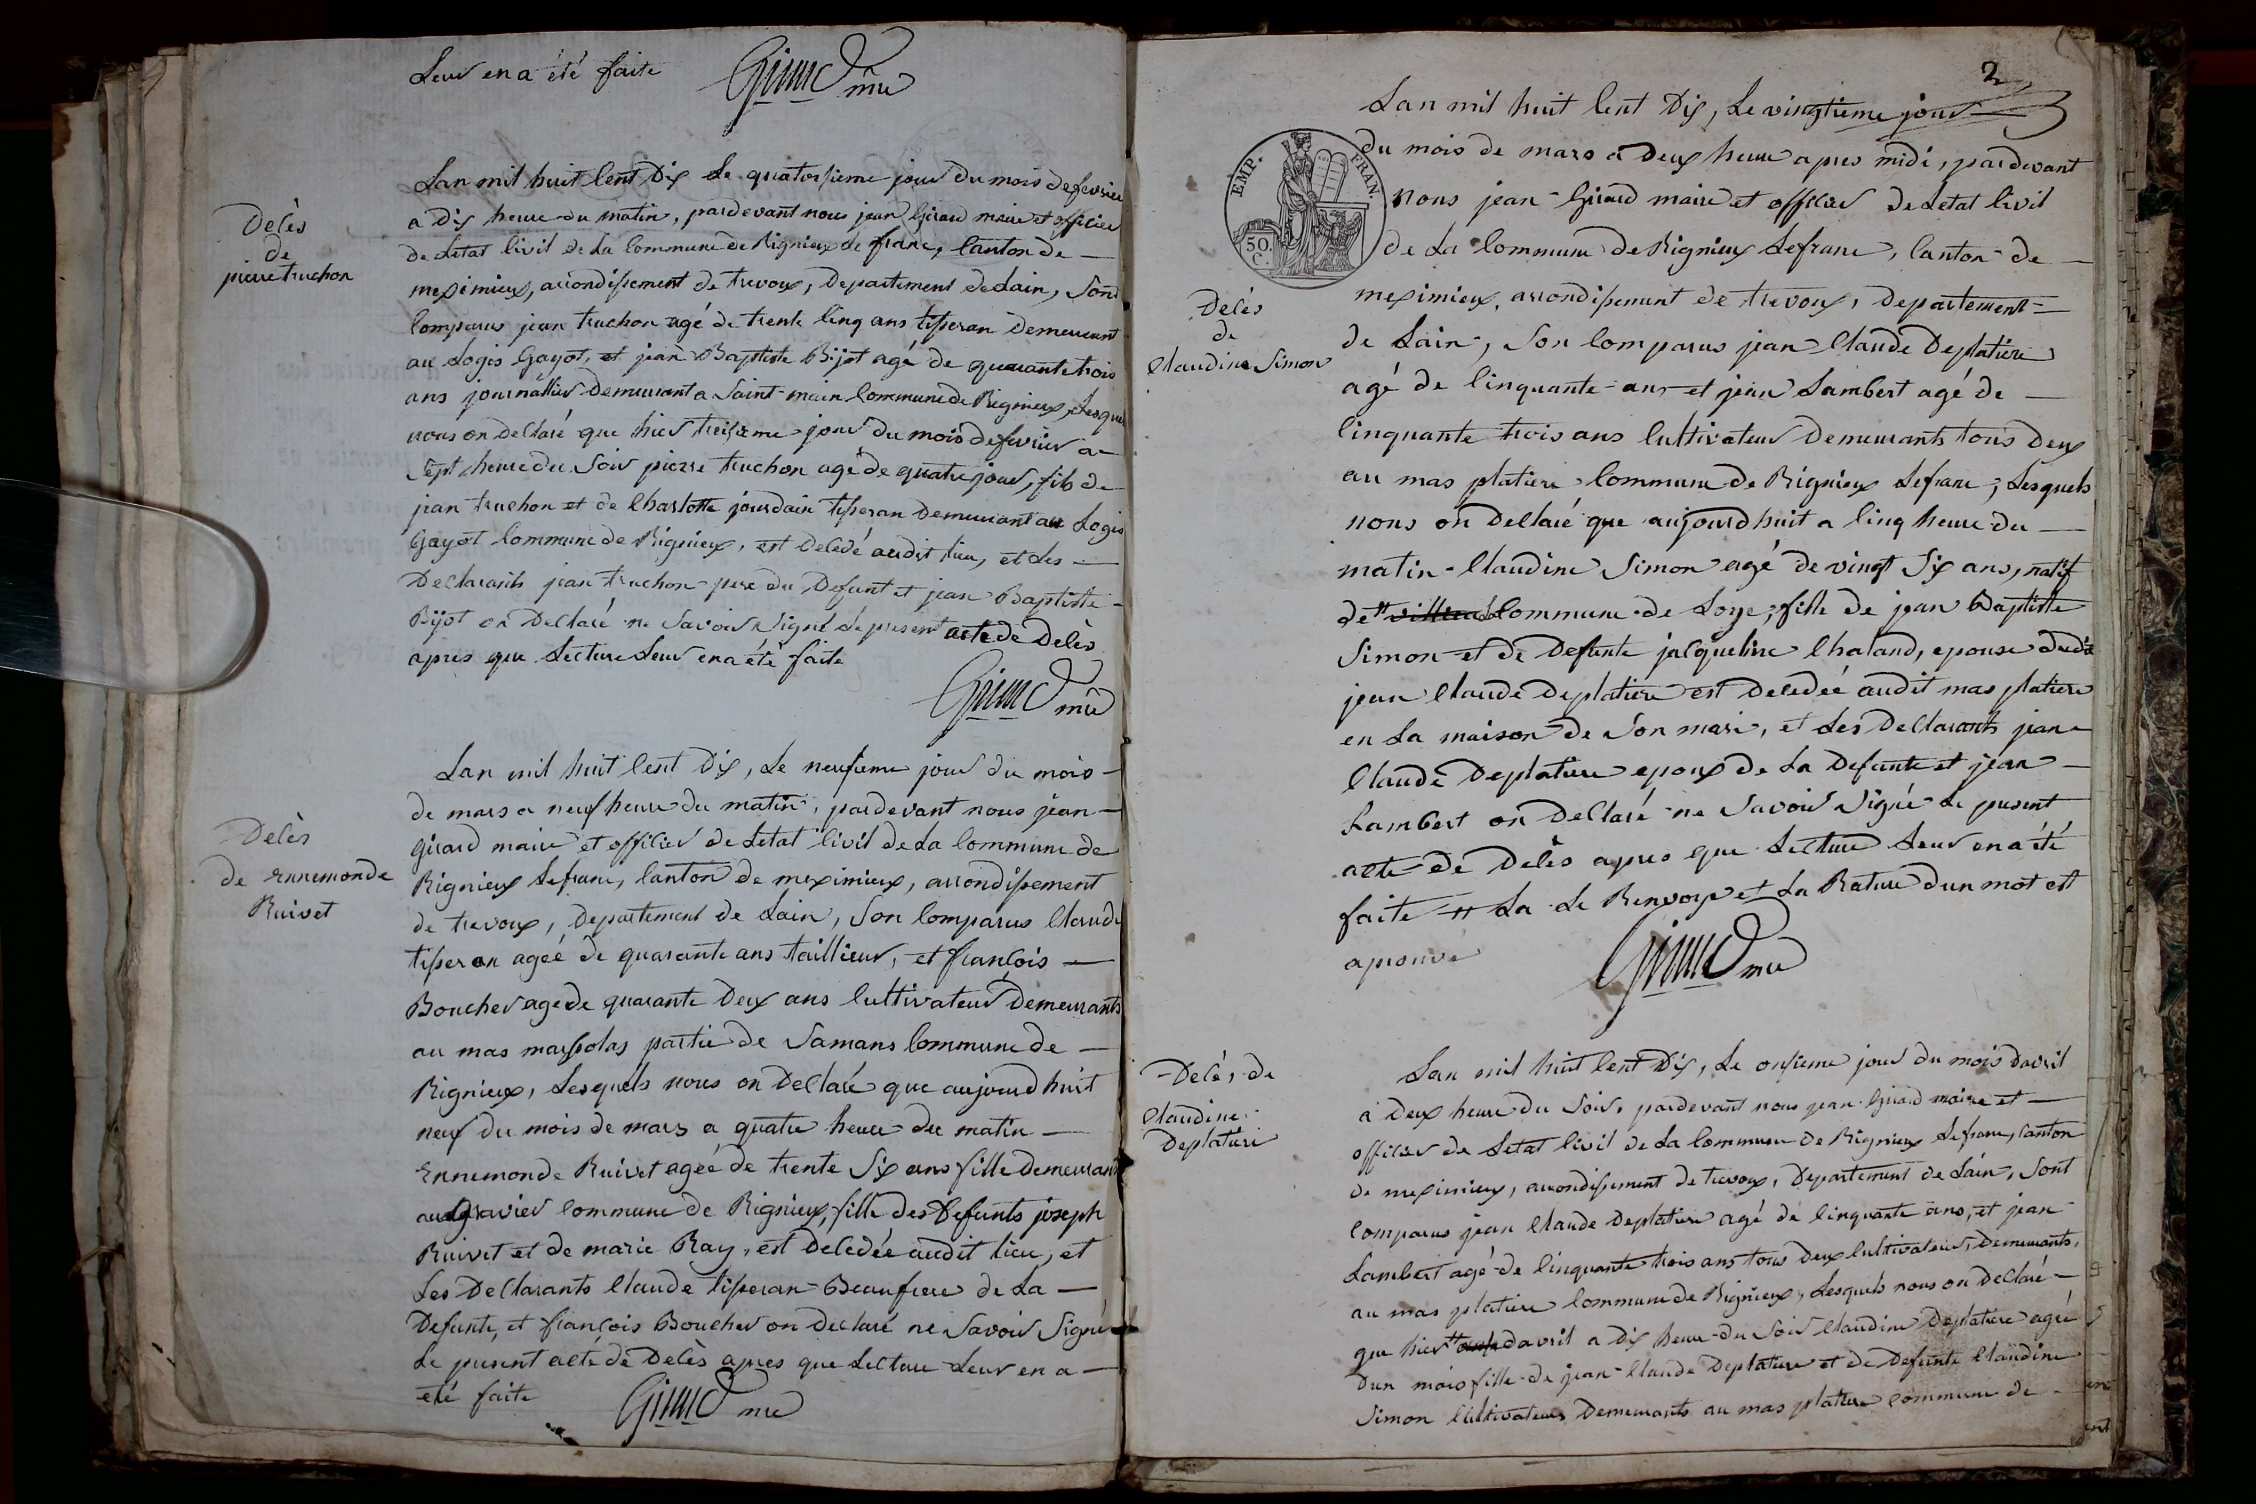 Leur en a été faite Girard mre
Decès
de
pierre truchon
Lan mil huit Cent Dix Le quatorsieme jour du mois de fevrier
a Dix heure du matin, pardevant nous jean Girard maire et officier
de Letat Civil de La Commune de Rignieux Le franc, Canton de
meximieux, arrondissement de trevoux, Departement de Lain, Sont
Comparus jean truchon agé de trente Cinq ans tisseran Demeurant
au Logis Gayot, et jean Baptiste Bijot agé de quarante trois
ans journallier Demeurant a Saint main Commune de Rignieux, Lesquels
nous on Declaré que hier treisieme jour du mois de fevrier a
Sept heure du Soir pierre truchon agé de quatre jour, fils de
jean truchon et de Charlotte jourdain tisseran Demeurant au Logis
Gayot Commune de Rignieux, est Decedé audit lieu, et Les
Declarants jean truchon pere du Defunt et jean Baptiste
Bijot on Declaré ne Savoir Signé Le present acte de Decès
apres que Lecture Leur en a été faite
Girard mre
Decès
de Ennemonde
Ruivet
Lan mil huit Cent Dix, Le neufieme jour du mois
de mars a neuf heure du matin, pardevant nous jean
girard maire et officier de Letat Civil de La Commune de
Rignieux Lefranc, Canton de meximieux, arrondissement
de trevoux, Departement de Lain, Son Comparus Claude
tisseran ageé de quarante ans taillieur, et françois
Boucher age de quarante Deux ans Cultivateur Demeurants
au mas massolas partie de Samans Commune de
Rignieux, Lesquels nous on Declaré que aujourd huit
neuf du mois de mars a quatre heure du matin
Ennemonde Ruivet ageé de trente Six ans fille Demeurant
au Gravier Commune de Rignieux, fille des Defunts joseph
Ruivet et de marie Ray, est Decedée audit lieu, et
Les Declarants Claude tisseran Beaufrere de La
Defunte, et françois Boucher on declaré ne Savoir Signé
Le present acte de Decès apres que Lecture Leur en a
eté faite Girard mre
2
EMP. FRAN.
50.
C.
Decès
de
Claudine Simon
Lan mil huit Cent Dix, Le vingtieme jour
du mois de mars a Deux heure apres midi, pardevant
nous jean Girard maire et officier de Letat Civil
de La Commune de Rignieux Lefranc, Canton de
meximieux, arrondissement de trevoux, Departement
de Lain, Son Comparus jean Claude Deplatiere
agé de Cinquante ans et jean Lambert agé de
Cinquante trois ans Cultivateur Demeurants tous Deux
au mas platiere Commune de Rignieux Lefranc, Lesquels
nous on Declaré que aujourdhuit a Cinq heure du
matin Claudine Simon agé de vingt Six ans, natif
de Commune de Loye, fille de jean Baptiste
Simon et de Defunte jacqueline Chaland, epouse dudit
jean Claude Deplatiere est Decedeé audit mas platiere
en La maison de Son mari, et Les Declarants jean
Claude Deplatiere epoux de La Defunte et jean
Lambert on Declaré ne Savoir Signé Le present
acte de Decès apres que Lecture Leur en a été
faite # La Le Renvoye et La Rature dun mot est
aprouvé Girard mre
Decès de
Claudine
Deplatiere
Lan mil huit Cent Dix, Le onsieme jour du mois davril
a Deux heure du Soir, pardevant nous jean Girard maire et
officier de Letat Civil de La Commune de Rignieux Lefranc, Canton
de meximieux, arrondissement de trevoux, Departement de Lain, Sont
Comparus jean Claude Deplatiere agé de Cinquante ans, et jean
Lambert agé de Cinquante trois ans tous Deux Cultivateurs, Demeurants
au mas platiere Commune de Rignieux, Lesquels nous on Declaré
que hier davril a Dix heure du Soir Claudine Deplatiere ageé
Dun mois fille de jean Claude Deplatiere et de Defunte Claudine
Simon Cultivateurs Demeurants au mas platiere Commune de